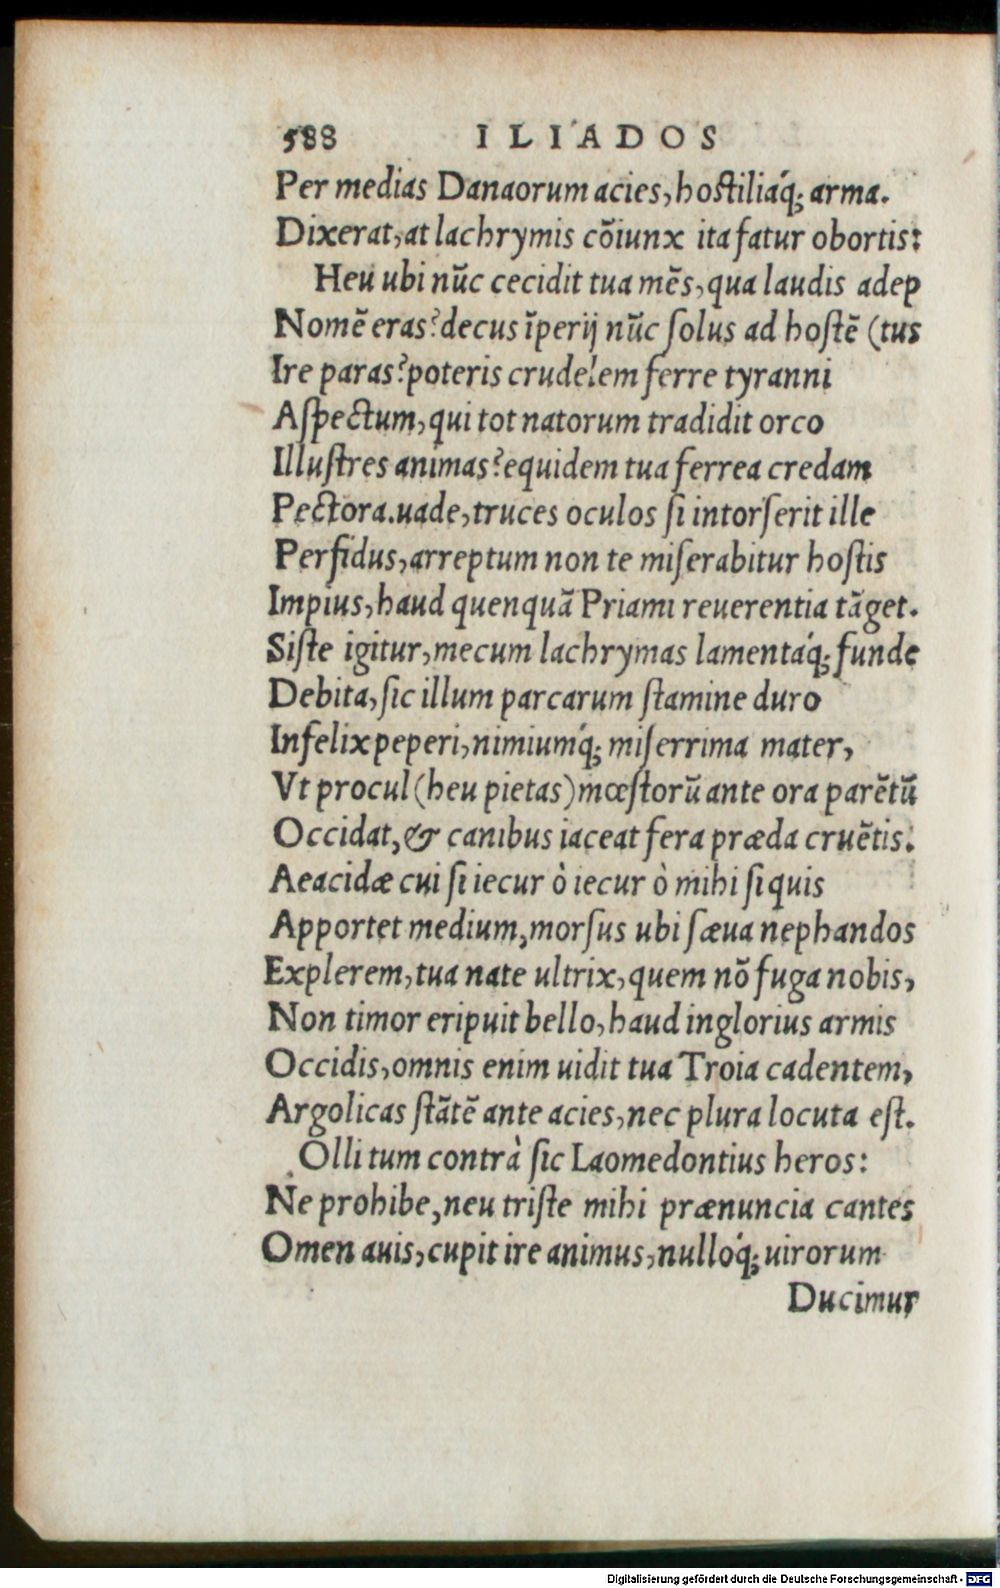 588 ILIADOS
Per medias Danaorum acies, hostiliáq; arma.
Dixerat, at lachrymis cõiunx ita fatur obortis:
Heu ubi nũc cecidit tua mẽs, qua laudis adep
Nomẽ eras? decus ĩperij nũc solus ad hostẽ (tus
Ire paras? poteris crudelem ferre tyranni
Aspectum, qui tot natorum tradidit orco
Illustres animas? equidem tua ferrea credam
Pectora. uade, truces oculos si intorserit ille
Perfidus, arreptum non te miserabitur hostis
Impius, haud quenquã Priami reuerentia tãget.
Siste igitur, mecum lachrymas lamentáq; funde
Debita, sic illum parcarum stamine duro
Infelix peperi, nimiumq́; miserrima mater,
Vt procul (heu pietas) mœstorũ ante ora parẽtũ
Occidat, & canibus iaceat fera præda cruẽtis.
Aeacidæ cui si iecur ò iecur ò mihi si quis
Apportet medium, morsus ubi sæua nephandos
Explerem, tua nate ultrix, quem nõ fuga nobis,
Non timor eripuit bello, haud inglorius armis
Occidis, omnis enim uidit tua Troia cadentem,
Argolicas stãtẽ ante acies, nec plura locuta est.
Olli tum contrà sic Laomedontius heros:
Ne prohibe, neu triste mihi prænuncia cantes
Omen auis, cupit ire animus, nullóq; uirorum
Ducimur
Digitalisierung gefördert durch die Deutsche Forschungsgemeinschaft - DFG